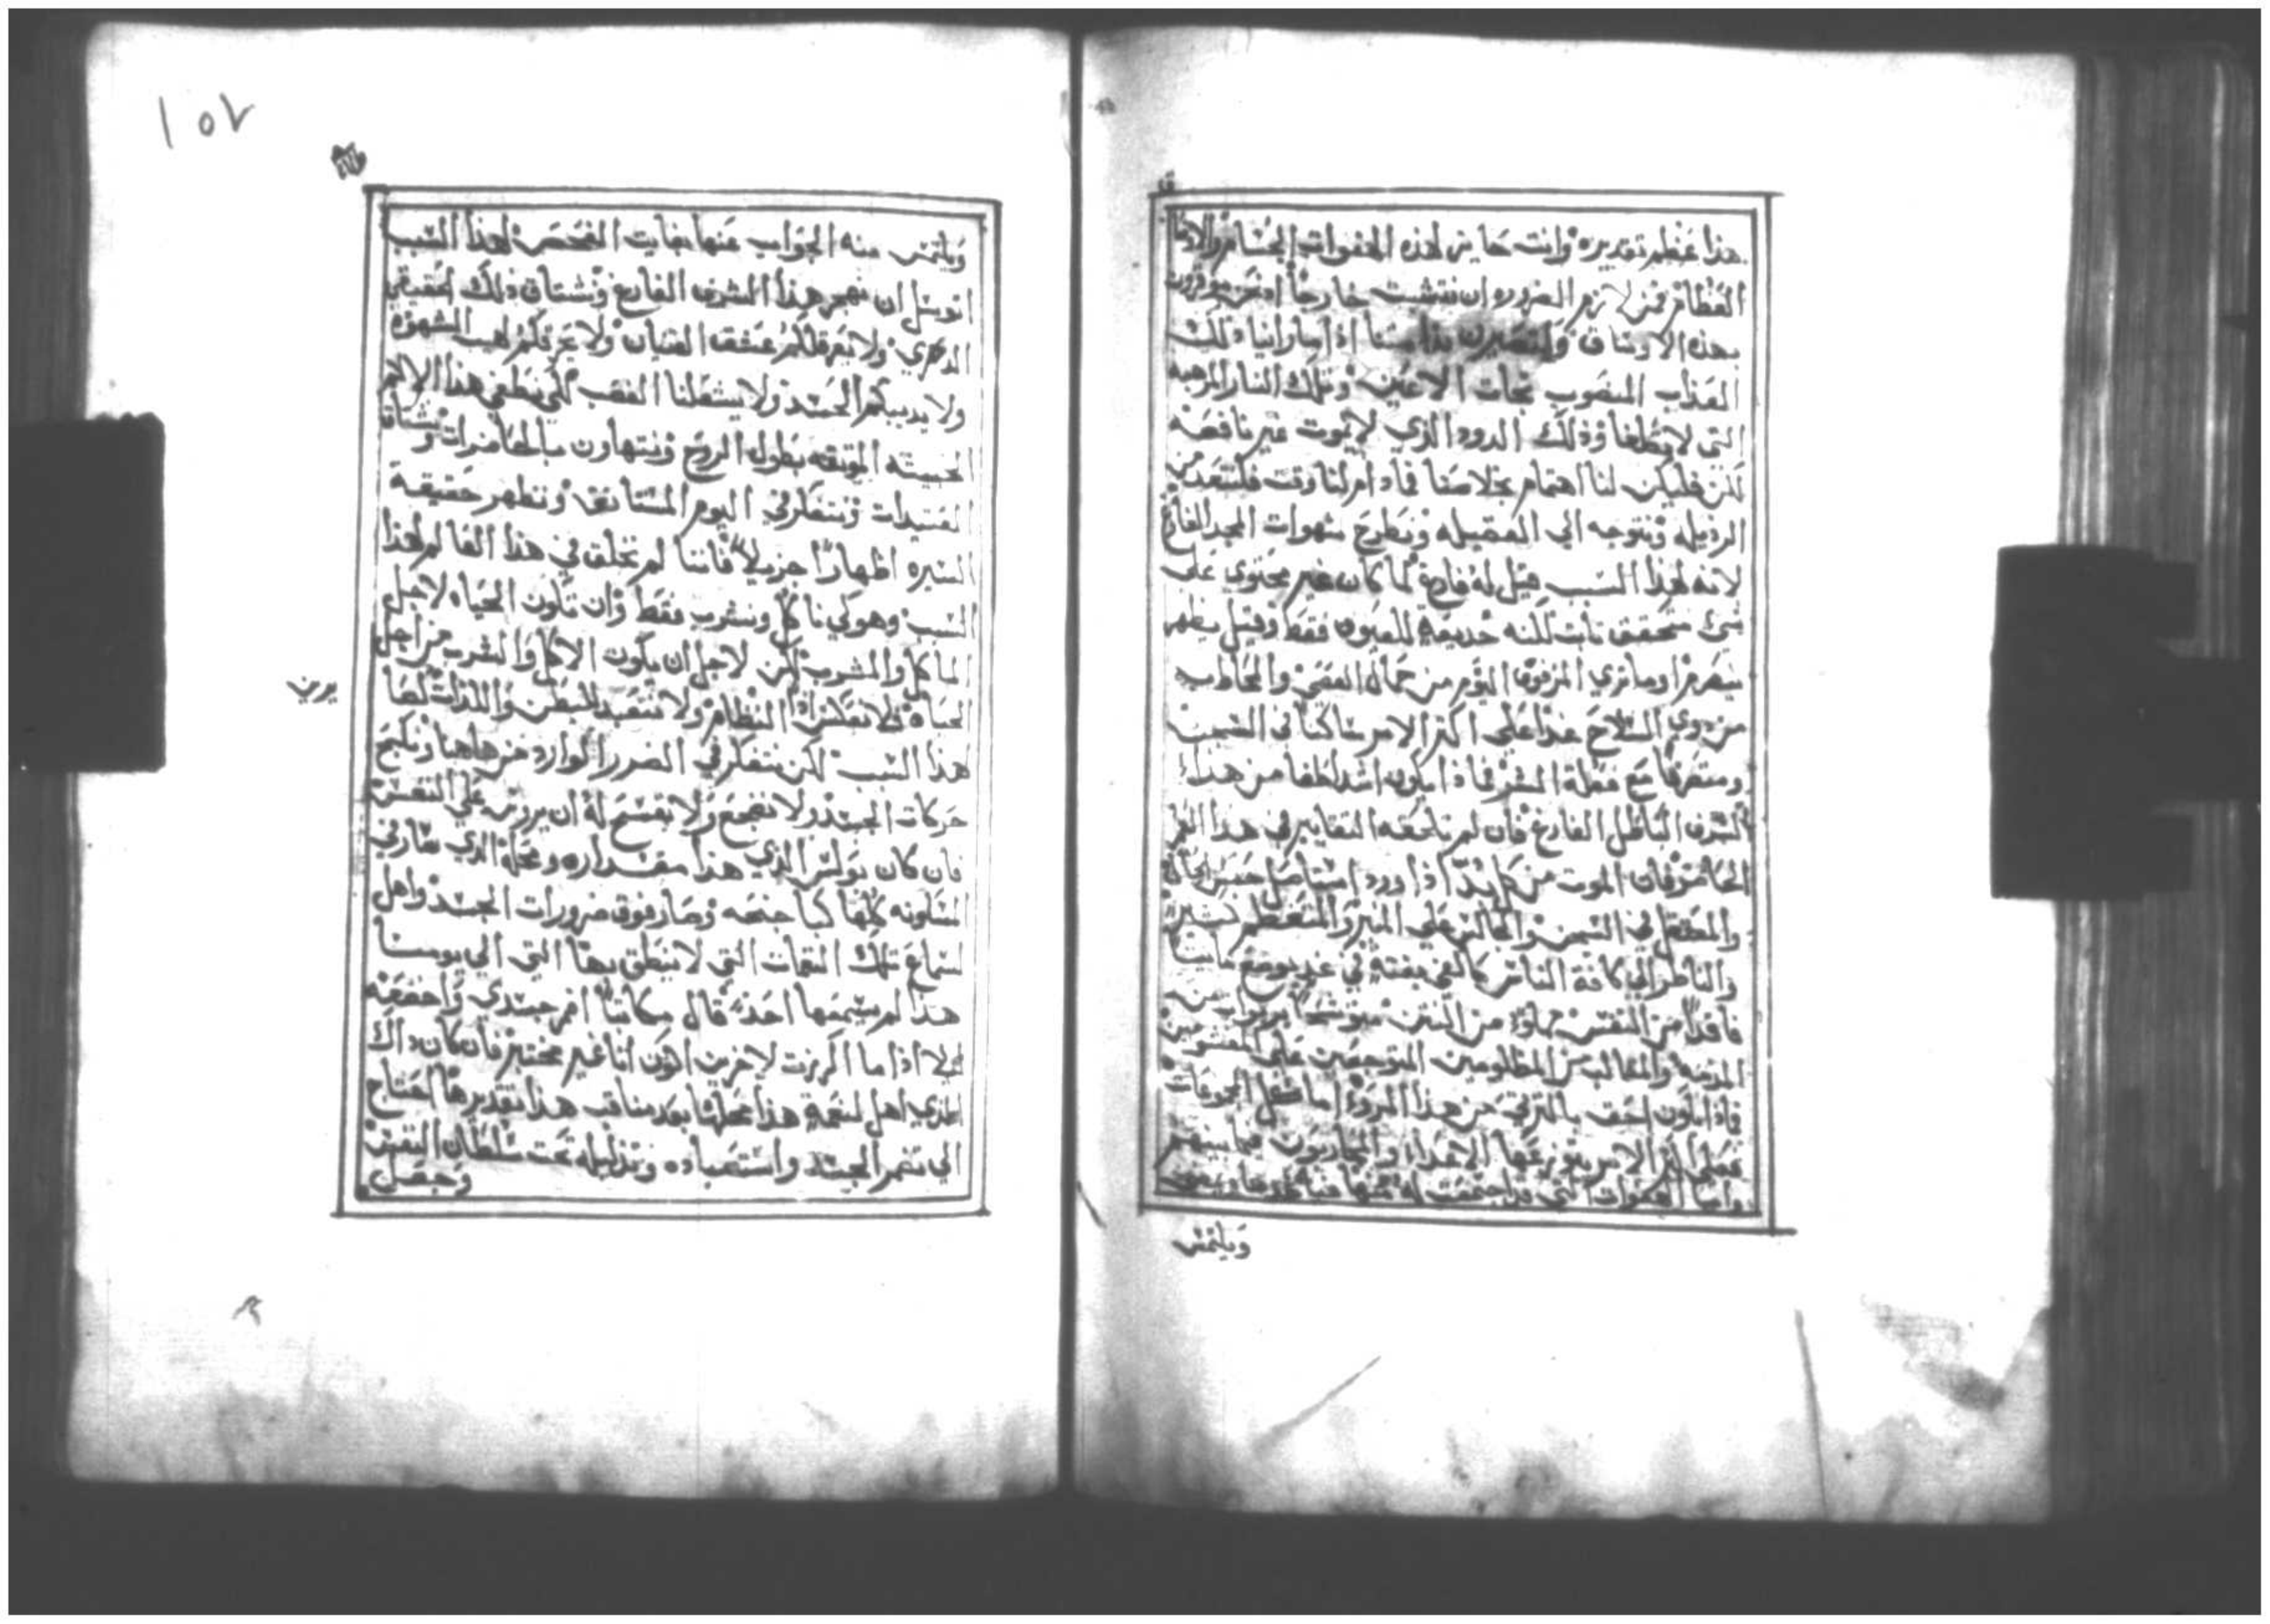 هذا عظم تقديره وانت حاين لهذه الهفوات الجسام والاوقار
العظام فمن لازم الضروره ان نتشبث خارجاً اذ نحن موقرون
بهذه الاوساق ولنصيرن بذاتنا اذا ما راينا ذلك
العذاب المنصوب تجات الاعين وتلك النار المرهبه
التي لا تطفا وذلك الدود الذي لا يموت غير ناقصه
لكن فليكن لنا اهتمام بخلاصنا فما دام لنا وقت فلنتعد من
الرذيله ونتوجه الي الفضيله ونطرح شهوات المجد الفارغ
لانه لهذا السبب قيل له فارغ لما كان غير محتوي علي
شيء متحقق ثابت لكنه خديعة للعيون فقط وقبل يظهر
ينصرم او ما تري المزفوف اليوم من جمال الفضي والمخاطب
من ذوي السلاح غداً علي اكثر الامر ساكناً في السجن
ومتصرفاً مع فعلة الشر فماذا يكون اشد لطفا من هذا
الشرف الباطل الفارغ فان لم تلحقه التغايير في هذا العمر
الحاضر فان الموت من كل بد اذا ورد استاصل حسن الحال
والمعتقل في السجن والجالس علي المنبر والمتعظم كثيراً
والناظر الي كافة الناس كالفي بغتة في غد يوضع مايتاً
فاقداً من النفس مملوء من النتن متوشحاً بربوات من
المذمه والمثالب من المظلومين المتوجعين علي المغشومين
فماذا يكون احق بالترثي من هذا المرؤ اما كل المجموعات
فعلي اكثر الامر يتوزعها الاعداء والمحاربون فيما بينهم
واما الهفوات التي قد اجتمعت له منها فياخذها ويمضي
ويلتمس
١٥٧
ويلتمس منه الجواب عنها بغايت الفحص لهذا السبب
اتوسل ان نهجر هذا الشرف الفارغ ونشتاق ذلك الحقيقي
الدهري ولا يعرقلكم عشق القنيان ولا يحرقكم لهيب الشهوه
ولا يديبكم الحسد ولا يشعلنا الغضب لكي نطفي هذا الالام
الخبيثه الموبقه بطول الروح ونتهاون بالحاضرات ونشتاق
العتيدات ونتفكر في اليوم المستانف ونظهر حقيقة
السيره اظهاراً جزيلاً فاننا لم نخلق في هذا العالم لهذا
السبب وهو لكي ناكل ونشرب فقط وان تكون الحياه لاجل
الماكل والمشرب لكن لاجل ان يكون الاكل والشرب من اجل
الحياه فلا نعكس اذاً النظام ولا نتعبد للبطن واللذات لها
هذا السبب لكن نتفكر في الضرر الوارد من هاهنا ونكبح
يرين
حركات الجسد ولا نضجع ولا نفسح له ان يرروس علي النفس
فان كان بولس الذي هذا مقداره ومحله الذي سار في
المسكونه كلها كبا جنحه وصار فوق ضرورات الجسد واهل
لسماع تلك النغمات التي لا ينطق بها التي الي يومنا
هذا لم يسمعها احد قال مكاتباً اقمع جسدي واخضعه
ليلا اذا ما اكرزت لاخرين اكون انا غير مختبر فان كان ذاك
الذي اهل لنعمة هذا محلها بعد مناقب هذا تقديرها احتاج
الي تضمر الجسد واستعباده وتذليله تحت سلطان النفس
وحصل